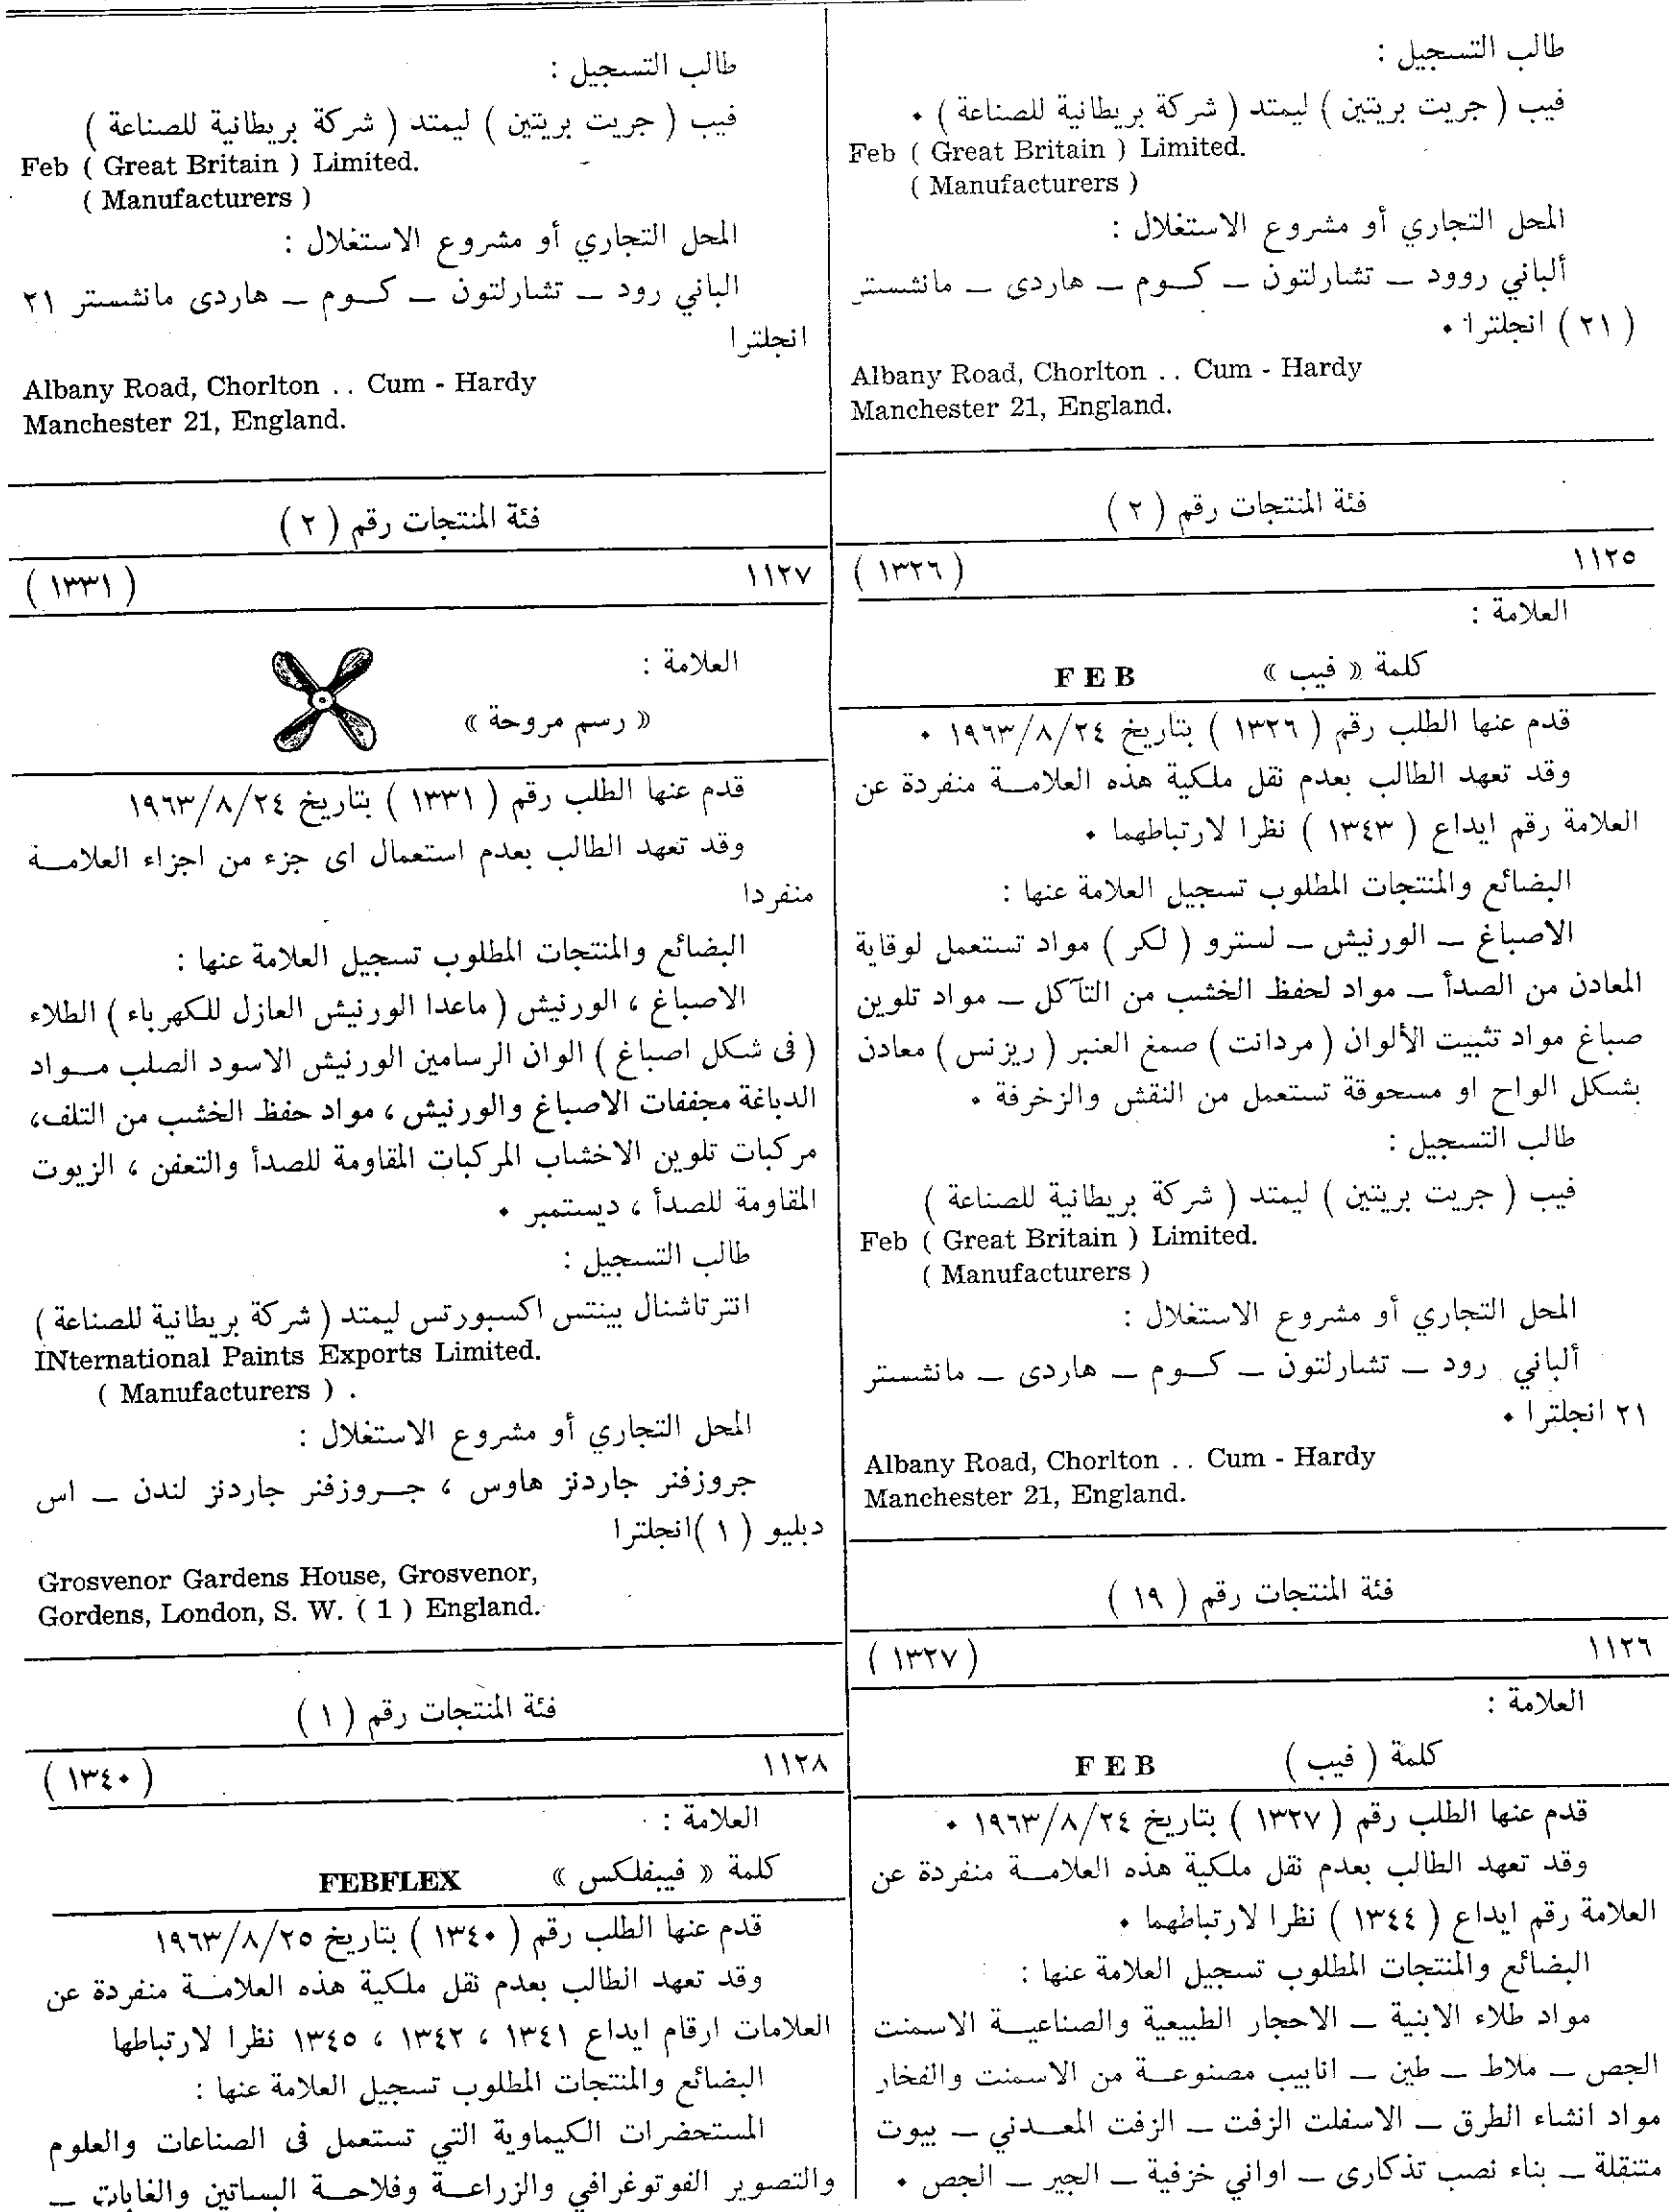 طالب التسجيل :
فيب ( جريت بريتين ) ليمتد ( شركة بريطانية للصناعة ) •
Feb ( Great Britain ) Limited.
( Manufacturers )
المحل التجاري أو مشروع الاستغلال :
ألباني روود ــ تشارلتون ــ كـوم ــ هاردى ــ مانشستر
( ٢١ ) انجلترا •
Albany Road, Chorlton .. Cum - Hardy
Manchester 21, England.
فئة المنتجات رقم ( ٢ )
١١٢٥ ( ١٣٢٦ )
العلامة :
كلمة « فيب » FEB
قدم عنها الطلب رقم ( ١٣٢٦ ) بتاريخ ١٩٦٣/٨/٢٤ •
وقد تعهد الطالب بعدم نقل ملكية هذه العلامـة منفردة عن
العلامة رقم ايداع ( ١٣٤٣ ) نظرا لارتباطهما •
البضائع والمنتجات المطلوب تسجيل العلامة عنها :
الاصباغ ــ الورنيش ــ لسترو ( لكر ) مواد تستعمل لوقاية
المعادن من الصدأ ــ مواد لحفظ الخشب من التآكل ــ مواد تلوين
صباغ مواد تثبيت الألوان ( مردانت ) صمغ العنبر ( ريزنس ) معادن
بشكل الواح او مسحوقة تستعمل من النقش والزخرفة •
طالب التسجيل :
فيب ( جريت بريتين ) ليمتد ( شركة بريطانية للصناعة )
Feb ( Great Britain ) Limited.
( Manufacturers )
المحل التجاري أو مشروع الاستغلال :
ألباني رود ــ تشارلتون ــ كـوم ــ هاردى ــ مانشستر
٢١ انجلترا •
Albany Road, Chorlton .. Cum - Hardy
Manchester 21, England.
فئة المنتجات رقم ( ١٩ )
١١٢٦ ( ١٣٢٧ )
العلامة :
كلمة ( فيب ) FEB
قدم عنها الطلب رقم ( ١٣٢٧ ) بتاريخ ١٩٦٣/٨/٢٤ •
وقد تعهد الطالب بعدم نقل ملكية هذه العلامـة منفردة عن
العلامة رقم ايداع ( ١٣٤٤ ) نظرا لارتباطهما •
البضائع والمنتجات المطلوب تسجيل العلامة عنها :
مواد طلاء الابنية ــ الاحجار الطبيعية والصناعيـة الاسمنت
الجص ــ ملاط ــ طين ــ انابيب مصنوعـة من الاسمنت والفخار
مواد انشاء الطرق ــ الاسفلت الزفت ــ الزفت المعـدني ــ بيوت
متنقلة ــ بناء نصب تذكارى ــ اواني خزفية ــ الجير ــ الجص •
طالب التسجيل :
فيب ( جريت بريتين ) ليمتد ( شركة بريطانية للصناعة )
Feb ( Great Britain ) Limited.
( Manufacturers )
المحل التجاري أو مشروع الاستغلال :
الباني رود ــ تشارلتون ــ كـوم ــ هاردى مانشستر ٢١
انجلترا
Albany Road, Chorlton .. Cum - Hardy
Manchester 21, England.
فئة المنتجات رقم ( ٢ )
١١٢٧ ( ١٣٣١ )
العلامة :
« رسم مروحة »
قدم عنها الطلب رقم ( ١٣٣١ ) بتاريخ ١٩٦٣/٨/٢٤
وقد تعهد الطالب بعدم استعمال اى جزء من اجزاء العلامـة
منفردا
البضائع والمنتجات المطلوب تسجيل العلامة عنها :
الاصباغ ، الورنيش ( ماعدا الورنيش العازل للكهرباء ) الطلاء
( فى شكل اصباغ ) الوان الرسامين الورنيش الاسود الصلب مـواد
الدباغة مجففات الاصباغ والورنيش ، مواد حفظ الخشب من التلف،
مركبات تلوين الاخشاب المركبات المقاومة للصدأ والتعفن ، الزيوت
المقاومة للصدأ ، ديستمبر •
طالب التسجيل :
انترتاشنال بينتس اكسبورتس ليمتد ( شركة بريطانية للصناعة )
INternational Paints Exports Limited.
( Manufacturers ) .
المحل التجاري أو مشروع الاستغلال :
جروزفنر جاردنز هاوس ، جـروزفنر جاردنز لندن ــ اس
دبليو ( ١ )انجلترا
Grosvenor Gardens House, Grosvenor,
Gordens, London, S. W. ( 1 ) England.
فئة المنتجات رقم ( ١ )
١١٢٨ ( ١٣٤٠ )
العلامة :
كلمة « فيبفلكس » FEBFLEX
قدم عنها الطلب رقم ( ١٣٤٠ ) بتاريخ ١٩٦٣/٨/٢٥
وقد تعهد الطالب بعدم نقل ملكية هذه العلامـة منفردة عن
العلامات ارقام ايداع ١٣٤١ ، ١٣٤٢ ، ١٣٤٥ نظرا لارتباطها
البضائع والمنتجات المطلوب تسجيل العلامة عنها :
المستحضرات الكيماوية التي تستعمل فى الصناعات والعلوم
والتصوير الفوتوغرافي والزراعـة وفلاحـة البساتين والغابات ــ